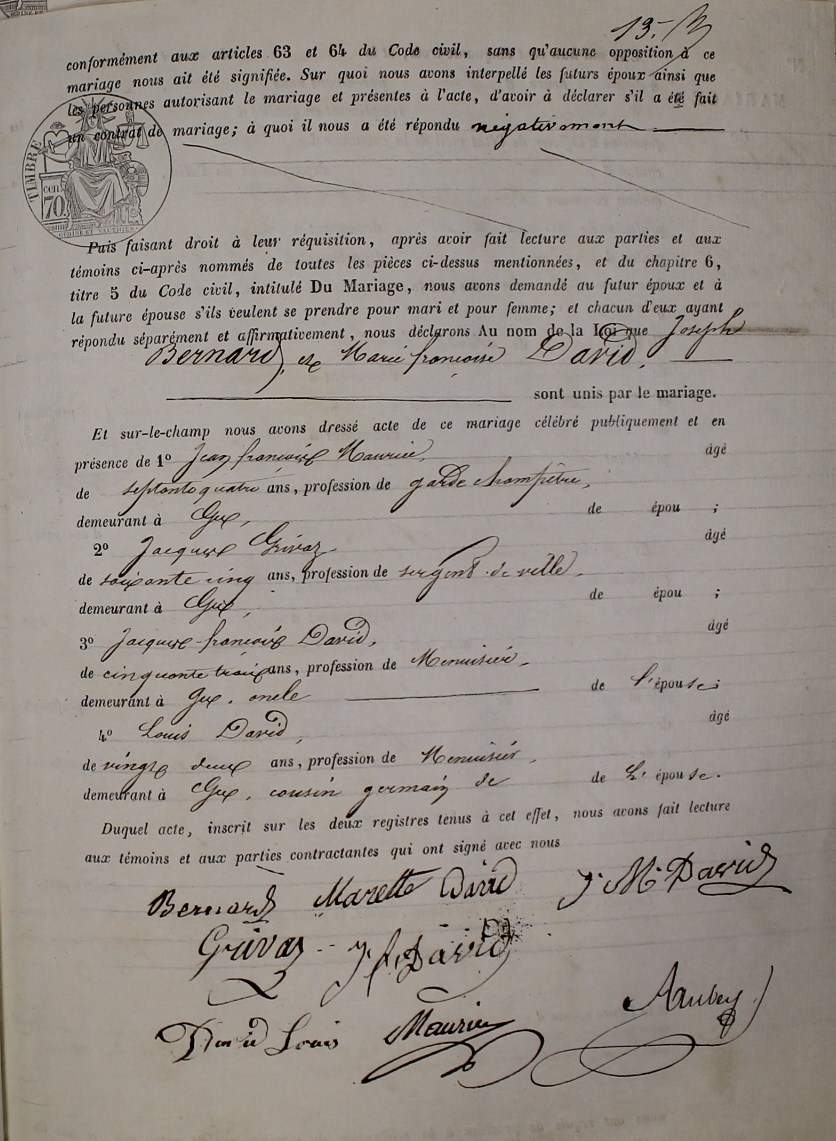 13.
conformément aux articles 63 et 64 du Code civil, sans qu'aucune opposition à ce
mariage nous ait été signifiée. Sur quoi nous avons interpellé les futurs époux ainsi que
les personnes autorisant le mariage et présentes à l'acte, d'avoir à déclarer s'il a été fait
un contrat de mariage; à quoi il nous a été répondu négativement
TIMBRE
cen
70
Puis faisant droit à leur réquisition, après avoir fait lecture aux parties et aux
témoins ci-après nommés de toutes les pièces ci-dessus mentionnées, et du chapitre 6,
titre 5 du Code civil, intitulé Du Mariage, nous avons demandé au futur époux et à
la future épouse s'ils veulent se prendre pour mari et pour femme; et chacun d'eux ayant
répondu séparément et affirmativement, nous déclarons Au nom de la Loi que Joseph
Bernard, et Marie françoise David,
sont unis par le mariage.
Et sur-le-champ nous avons dressé acte de ce mariage célébré publiquement et en
présence de 1º Jean françois Maurice, âgé
de septante quatre ans, profession de garde champêtre,
demeurant à Gex, de épou ;
2º Jacques Grivaz, âgé
de soixante cinq ans, profession de sergent de ville,
demeurant à Gex, de épou ;
3º Jacques-françois David, âgé
de cinquante trois ans, profession de Menuisier,
demeurant à Gex, oncle de l'épouse;
4º Louis David, âgé
de vingt deux ans, profession de Menuisier,
demeurant à Gex, cousin germain de de L'épouse.
Duquel acte, inscrit sur les deux registres tenus à cet effet, nous avons fait lecture
aux témoins et aux parties contractantes qui ont signé avec nous
Bernard Marette David J. M. David
Grivaz J f. David
David Louis Maurice